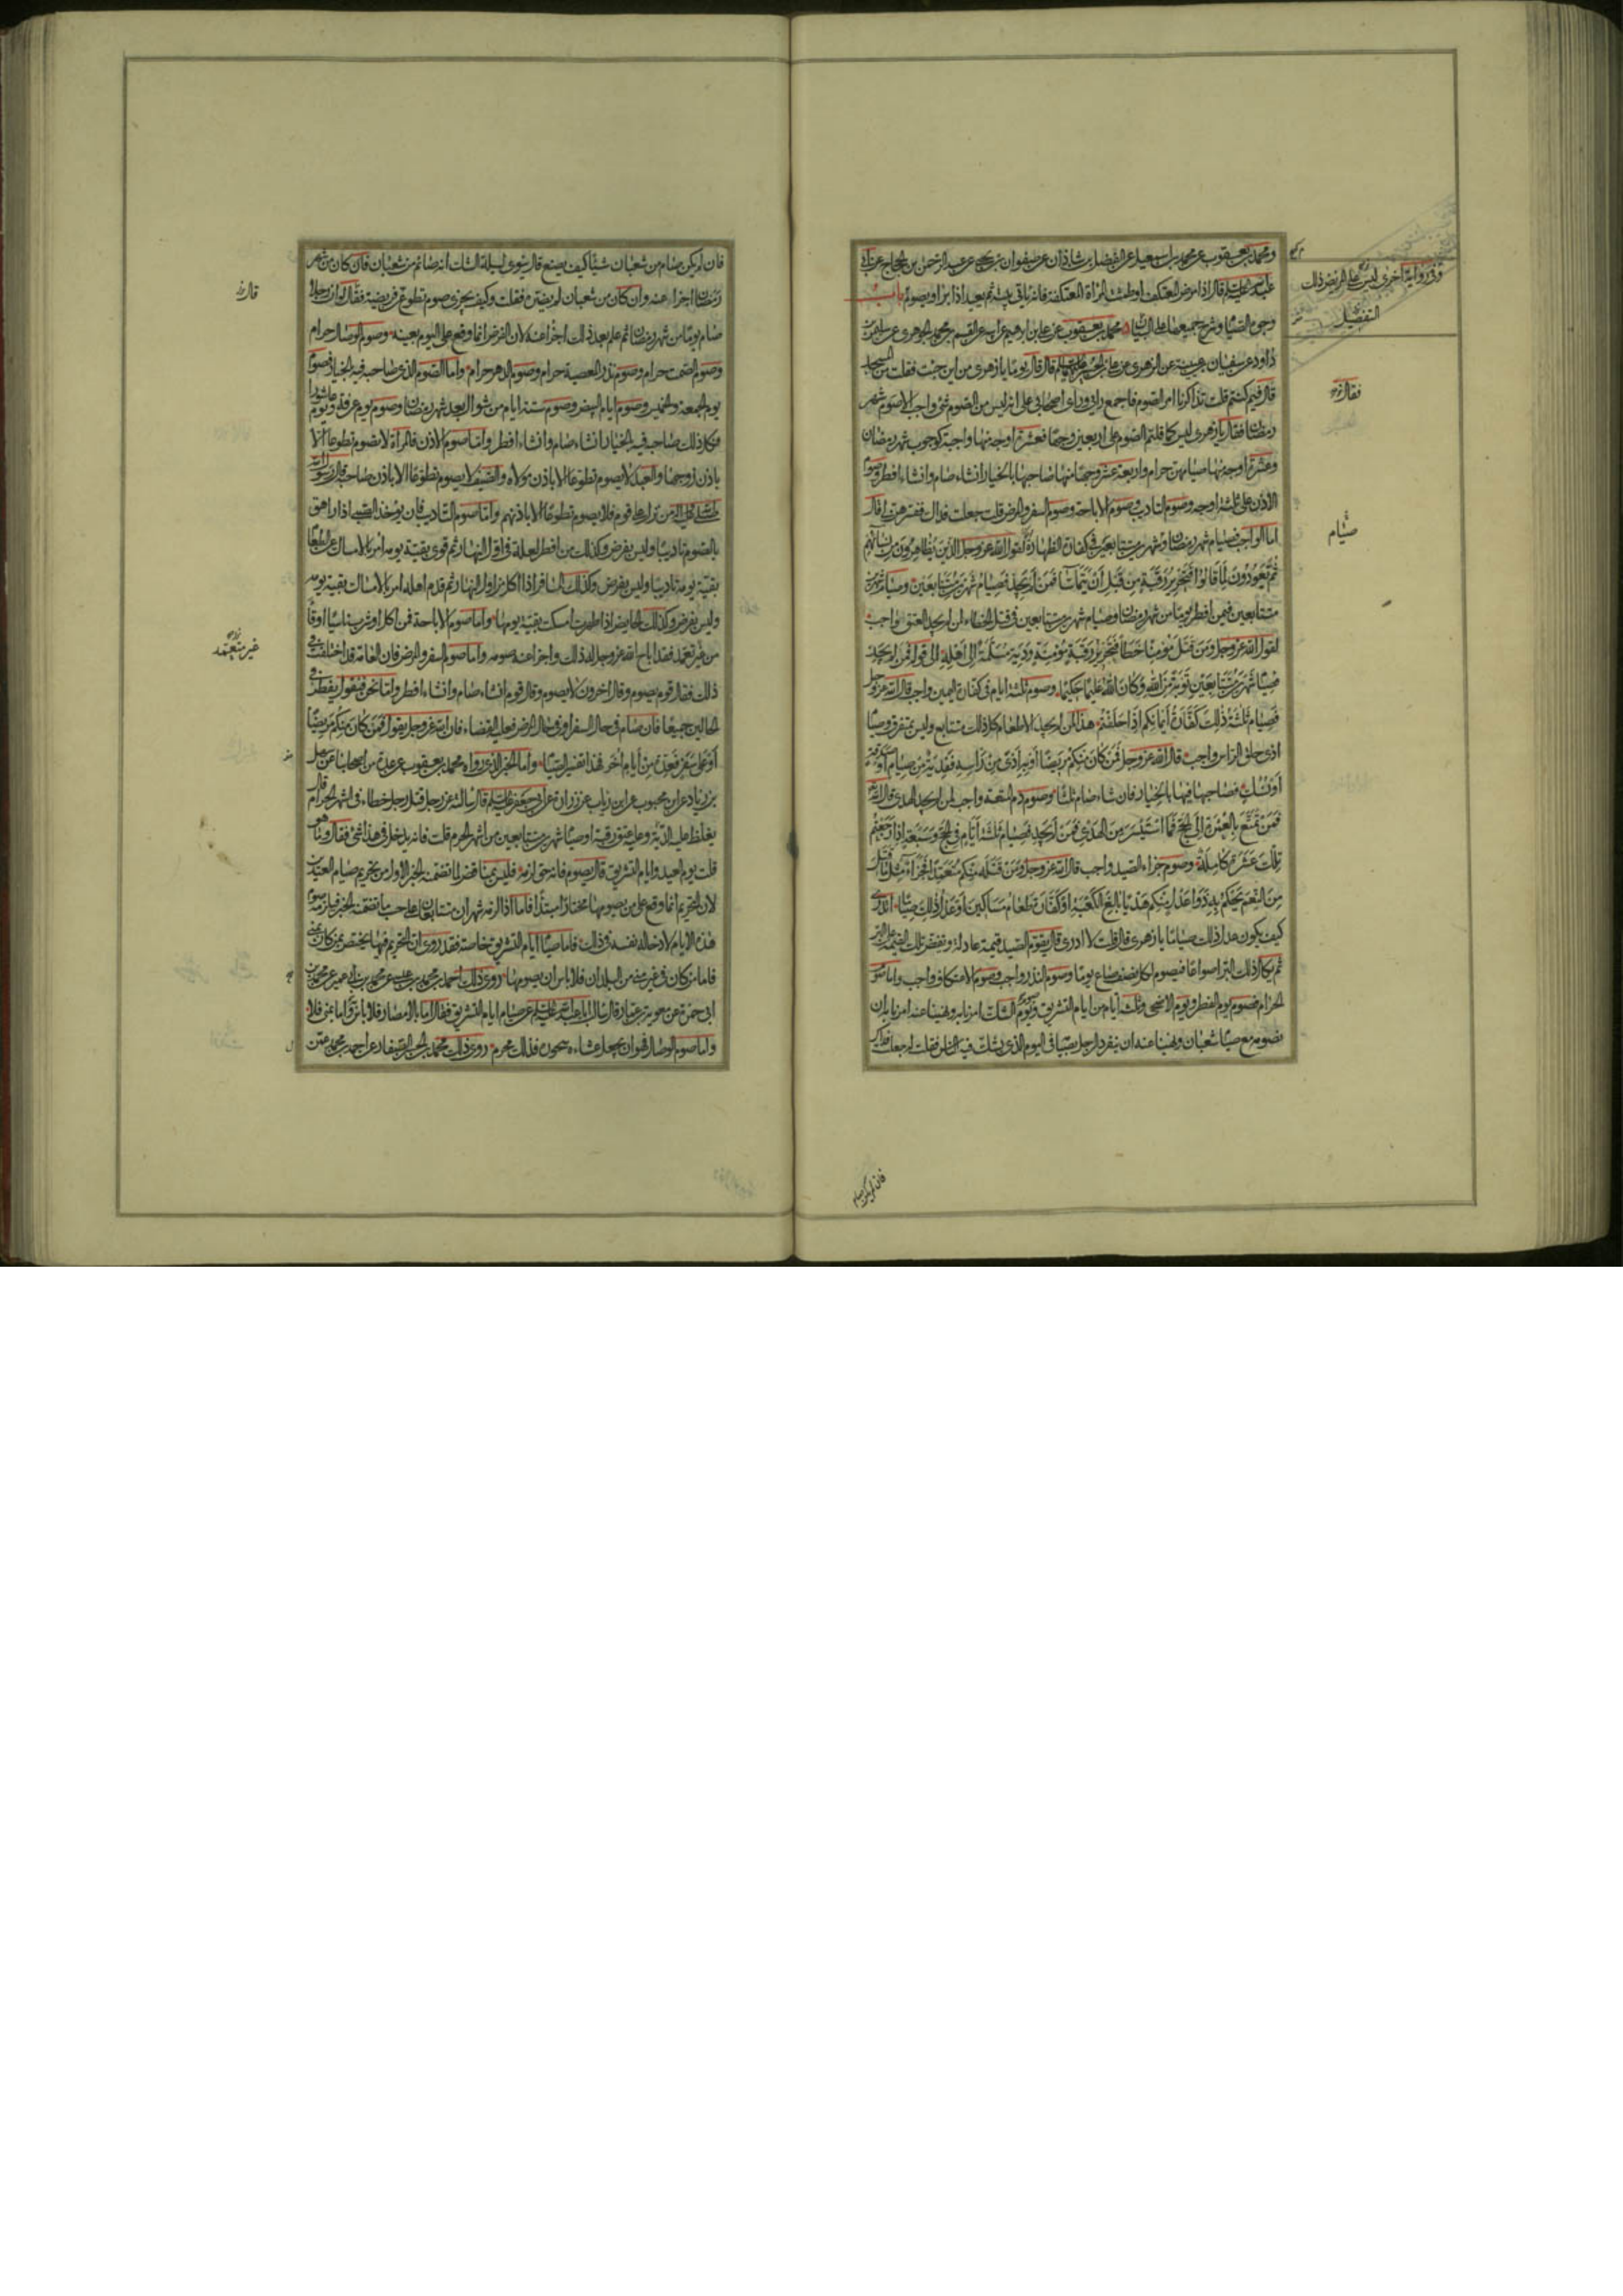 ومحمد بن يعقوب عن محمد بن اسمعيل عن الفضل بن شاذان عن صفوان بن يحيى عن عبد الرحمن بن الحجاج عن ابى
عبد الله عليه السلم قال اذا مرض المعتكف او طمثت المراة المعتكفة فانه ياتى بيته ثم يعيد اذا برا ويصوم باب
وجوه الصيام وشرح جميعها على البيان محمد بن يعقوب عن على بن ابرهيم عن ابيه عن القسم بن محمد الجوهرى عن سليمن بن
داود عن سفيان بن عيينة عن الزهرى عن على بن الحسين عليهما السلم قال قال لى يوما يا زهرى من اين جئت فقلت من المسجد
قال فيم كنتم قلت تذاكرنا امر الصوم فاجمع رايى وراى اصحابى على انه ليس من الصوم شئ واجب الا صوم شهر
رمضان فقال يا زهرى ليس كما قلتم الصوم على اربعين وجها فعشرة اوجه منها واجبة كوجوب شهر رمضان
وعشرة اوجه منها صيامهن حرام واربعة عشر وجها منها صاحبها بالخيار ان شاء صام وان شاء افطر وصوم
الاذن على ثلثة اوجه وصوم التاديب وصوم الاباحة وصوم السفر والمرض قلت جعلت فداك فسرهن لى قال
اما الواجب فصيام شهر رمضان وشهرين متتابعين فى كفارة الظهار لقول الله عز وجل الذين يظاهرون من نسائهم
ثم يعودون لما قالوا فتحرير رقبة من قبل ان يتماسا فمن لم يجد فصيام شهرين متتابعين وصيام شهرين
متتابعين فيمن افطر يوما من شهر رمضان وصيام شهرين متتابعين فى قتل الخطاء لمن لم يجد العتق واجب
لقول الله عز وجل ومن قتل مؤمنا خطأ فتحرير رقبة مؤمنة ودية مسلمة الى اهله الى قوله فمن لم يجد
فصيام شهرين متتابعين توبة من الله وكان الله عليما حكيما وصوم ثلثة ايام فى كفارة اليمين واجب قال الله عز وجل
فصيام ثلثة ذلك كفارة ايمانكم اذا حلفتم هذا لمن لم يجد الاطعام كل ذلك متتابع وليس بمتفرق وصيام
اذى حلق الراس واجب قال الله عز وجل فمن كان منكم مريضا او به اذى من راسه ففدية من صيام او صدقة
او نسك فصاحبها فيها بالخيار فان شاء صام ثلثا وصوم دم المتعة واجب لمن لم يجد الهدى قال الله
فمن تمتع بالعمرة الى الحج فما استيسر من الهدى فمن لم يجد فصيام ثلثة ايام فى الحج وسبعة اذا رجعتم
تلك عشرة كاملة وصوم جزاء الصيد واجب قال الله عز وجل ومن قتله منكم متعمدا فجزاء مثل ما قتل
من النعم يحكم به ذوا عدل منكم هديا بالغ الكعبة او كفارة طعام مساكين او عدل ذلك صياما اتدرى
كيف يكون عدل ذلك صياما يا زهرى قال قلت لا ادرى قال يقوم الصيد قيمة عادلة وتفض تلك القيمة على البر
ثم يكال ذلك البر اصواعا فيصوم لكل نصف صاع يوما وصوم النذر واجب وصوم الاعتكاف واجب واما صوم
الحرام فصوم يوم الفطر ويوم الاضحى وثلثة ايام من ايام التشريق وصوم يوم الشك امرنا به ونهينا عنه امرنا به ان
نصومه مع صيام شعبان ونهينا عنه ان ينفرد الرجل بصيامه فى اليوم الذى يشك فيه الناس فقلت له جعلت فداك
فان لم يكن صام
وفى رواية اخرى ليس على المريض ذلك
التفصيل
فقال
صيام
فان لم يكن صام من شعبان شيئا كيف يصنع قال ينوى ليلة الشك انه صائم من شعبان فان كان من شهر
رمضان اجزا عنه وان كان من شعبان لم يضره فقلت وكيف يجزى صوم تطوع عن فريضة فقال لو ان رجلا
صام يوما من شهر رمضان ثم علم بعد ذلك اجزا عنه لان الفرض انما وقع على اليوم بعينه وصوم الوصال حرام
وصوم الصمت حرام وصوم نذر المعصية حرام وصوم الدهر حرام واما الصوم الذى صاحبه فيه بالخيار فصوم
يوم الجمعة والخميس وصوم ايام البيض وصوم ستة ايام من شوال بعد شهر رمضان وصوم يوم عرفة ويوم عاشورا
فكل ذلك صاحبه فيه بالخيار ان شاء صام وان شاء افطر واما صوم الاذن فالمراة لا تصوم تطوعا الا
باذن زوجها والعبد لا يصوم تطوعا الا باذن مولاه والضيف لا يصوم تطوعا الا باذن صاحبه قال رسول الله
صلى الله عليه واله من نزل على قوم فلا يصوم تطوعا الا باذنهم واما صوم التاديب فان يؤخذ الصبى اذا راهق
بالصوم تاديبا وليس بفرض وكذلك من افطر لعلة فى اول النهار ثم قوى بقية يومه امر بالامساك عن الطعام
بقية يومه تاديبا وليس بفرض وكذلك المسافر اذا اكل من اول النهار ثم قدم اهله امر بالامساك بقية يومه
وليس بفرض وكذلك الحايض اذا طهرت امسكت بقية يومها واما صوم الاباحة فمن اكل او شرب ناسيا او قاء
من غير تعمد فقد اباح الله عز وجل له ذلك واجزا عنه صومه واما صوم السفر والمرض فان العامة قد اختلفت فى
ذلك فقال قوم يصوم وقال اخرون لا يصوم وقال قوم ان شاء صام وان شاء افطر واما نحن فنقول يفطر فى
الحالين جميعا فان صام فى حال السفر او فى حال المرض فعليه القضاء فان الله عز وجل يقول فمن كان منكم مريضا
او على سفر فعدة من ايام اخر فهذا تفسير الصيام واما الخبر الذى رواه محمد بن يعقوب عن عدة من اصحابنا عن سهل
بن زياد عن ابن محبوب عن ابن رياب عن زرارة عن ابى جعفر عليه السلم قال سالته عن رجل قتل رجلا خطاء فى اشهر الحرام قال
يغلظ عليه الدية وعليه عتق رقبة او صيام شهرين متتابعين من اشهر الحرم قلت فانه يدخل فى هذا شئ فقال وما هو
قلت يوم العيد وايام التشريق قال يصوم فانه حق لزمه فليس بمناقض لما تضمنه الخبر الاول من تحريم صيام العيدين
لان التحريم انما وقع على من يصومها مختارا مبتدأ فاما اذا لزمه شهران متتابعان على حسب ما تضمنه الخبر فيلزمه صوم
هذه الايام لادخاله نفسه فى ذلك فاما صيام ايام التشريق خاصة فقد روى ان التحريم فيها يختص بمن كان بمنى
فاما من كان فى غيره من البلدان فلا باس ان يصومها روى ذلك احمد بن محمد بن عيسى عن محمد بن ابى عمير عن محمد بن
ابى حمزة عن معوية بن عمار قال سالت ابا عبد الله عليه السلم عن صيام ايام التشريق فقال اما بالامصار فلا باس واما بمنى فلا
واما صوم الوصال فهو ان يجعل عشاءه سحوره فذلك محرم روى ذلك محمد بن الحسن الصفار عن احمد بن محمد عن
قال
غير متعمد